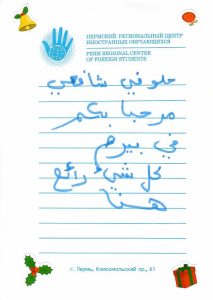 ПЕРМСКИЙ РЕГИОНАЛЬНЫЙ ЦЕНТР
ИНОСТРАННЫХ ОБУЧАЮЩИХСЯ
PERM REGIONAL CENTER
OF FOREIGN STUDENTS
مرحبا بكم
في بيرم
كل شيء رائع
هنا
г. Пермь, Комсомольский пр., 61